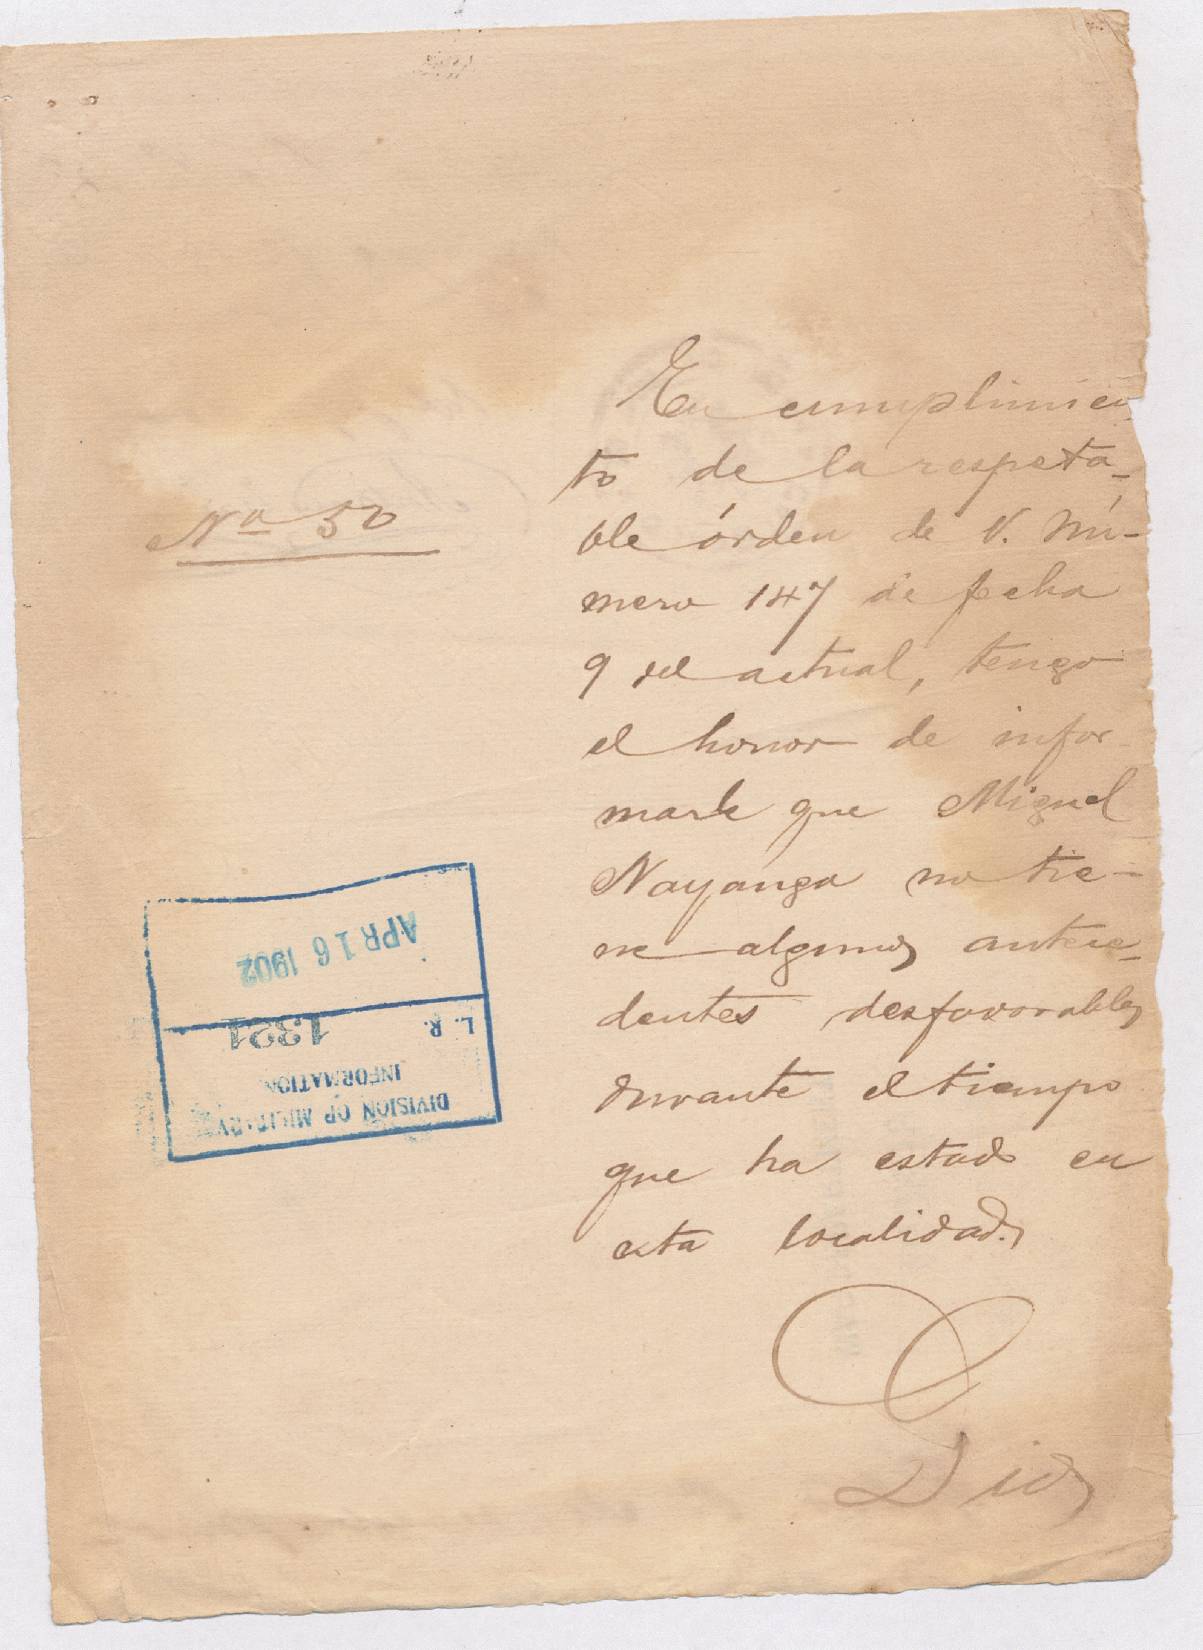 No 50
En cumplimien
to de la respeta-
ble órden de V. Nú-
mero 147 de fecha
9 del actual, tengo
el honor de infor
marle que Miguel
Nayanga no tie-
ne algunos antece-
dentes desfavorables
durante el tiempo
que ha estado en
esta localidad.
Dios
DIVISION OF MILITARY
INFORMATION
L. R. 1321
APR 16 1902